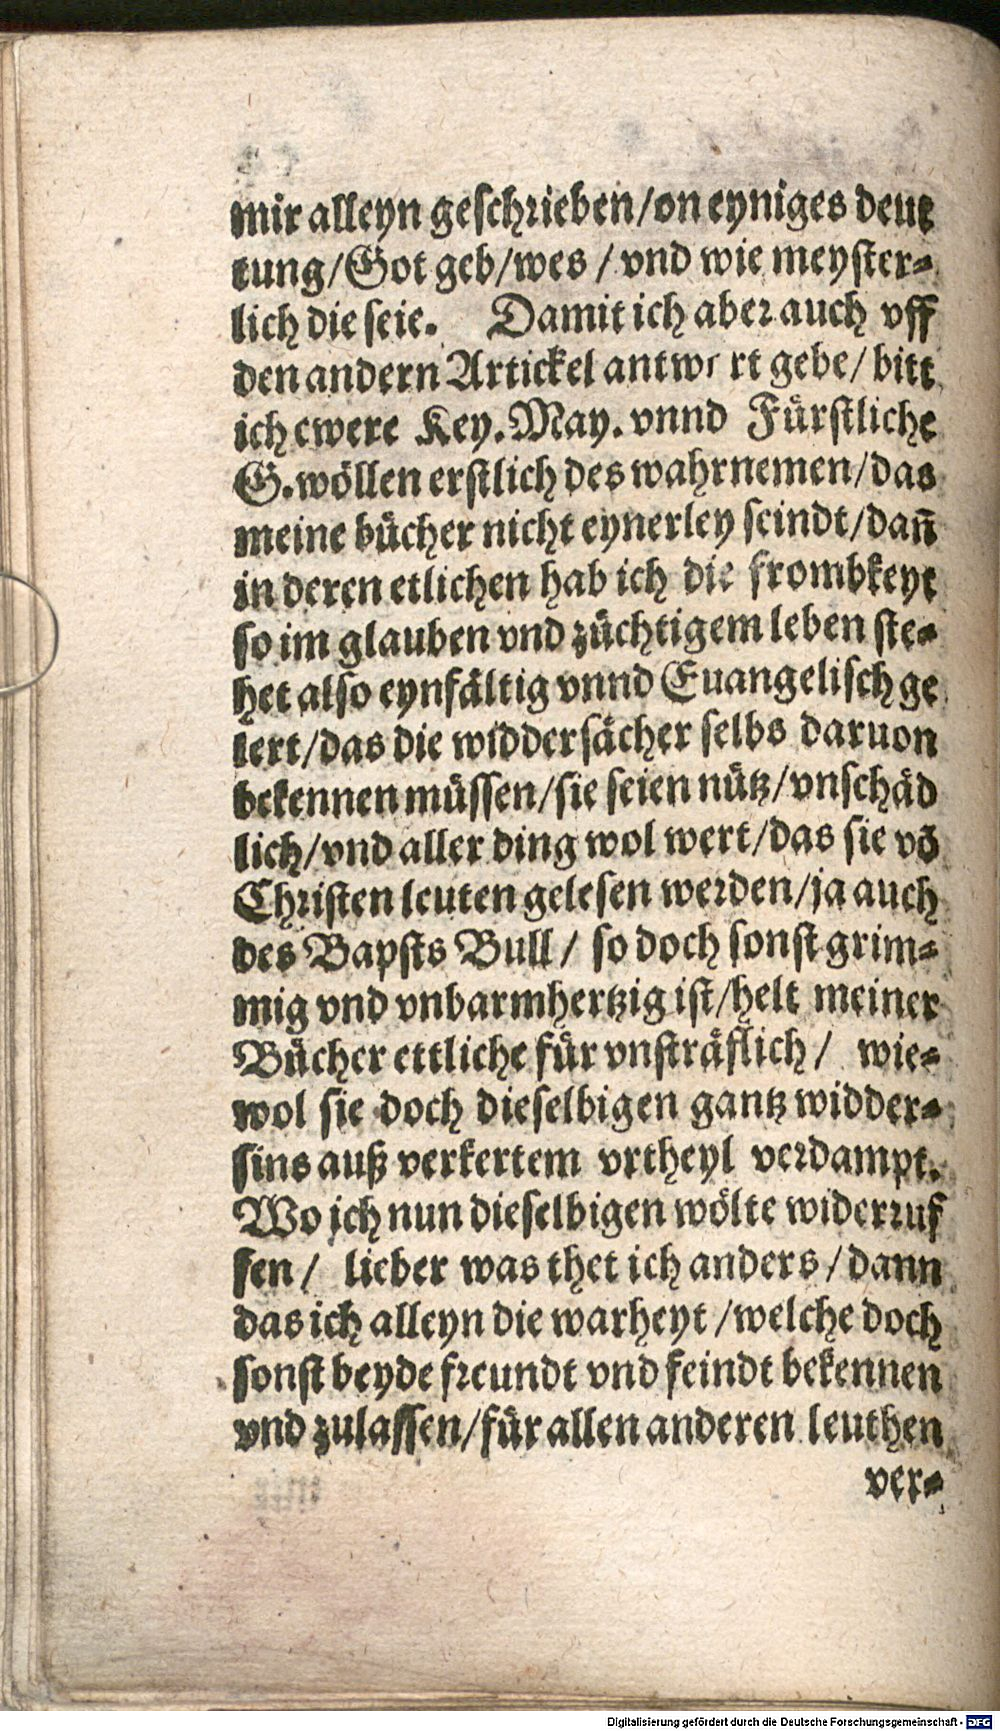 mir alleyn geschrieben/on eyniges deut
tung/Got geb/wes / vnd wie meyster⸗
lich die seie. Damit ich aber auch vff
den andern Artickel antwort gebe/ bitt
ich ewere Key. May. vnnd Fürstliche
G. wöllen erstlich des wahrnemen/das
meine bücher nicht eynerley seindt/dañ
in deren etlichen hab ich die frombkeyt
so im glauben vnd züchtigem leben ste⸗
het also eynfältig vnnd Euangelisch ge
lert/das die widdersächer selbs daruon
bekennen müssen/sie seien nütz/vnschäd
lich/vnd aller ding wol wert/das sie vō
Christen leuten gelesen werden/ja auch
des Bapsts Bull / so doch sonst grim⸗
mig vnd vnbarmhertzig ist/helt meiner
Bücher ettliche für vnsträflich / wie⸗
wol sie doch dieselbigen gantz widder⸗
sins auß verkertem vrtheyl verdampt.
Wo ich nun dieselbigen wölte widerruf
fen / lieber was thet ich anders / dann
das ich alleyn die warheyt /welche doch
sonst beyde freundt vnd feindt bekennen
vnd zulassen/für allen anderen leuthen
ver⸗
Digitalisierung gefördert durch die Deutsche Forschungsgemeinschaft - DFG